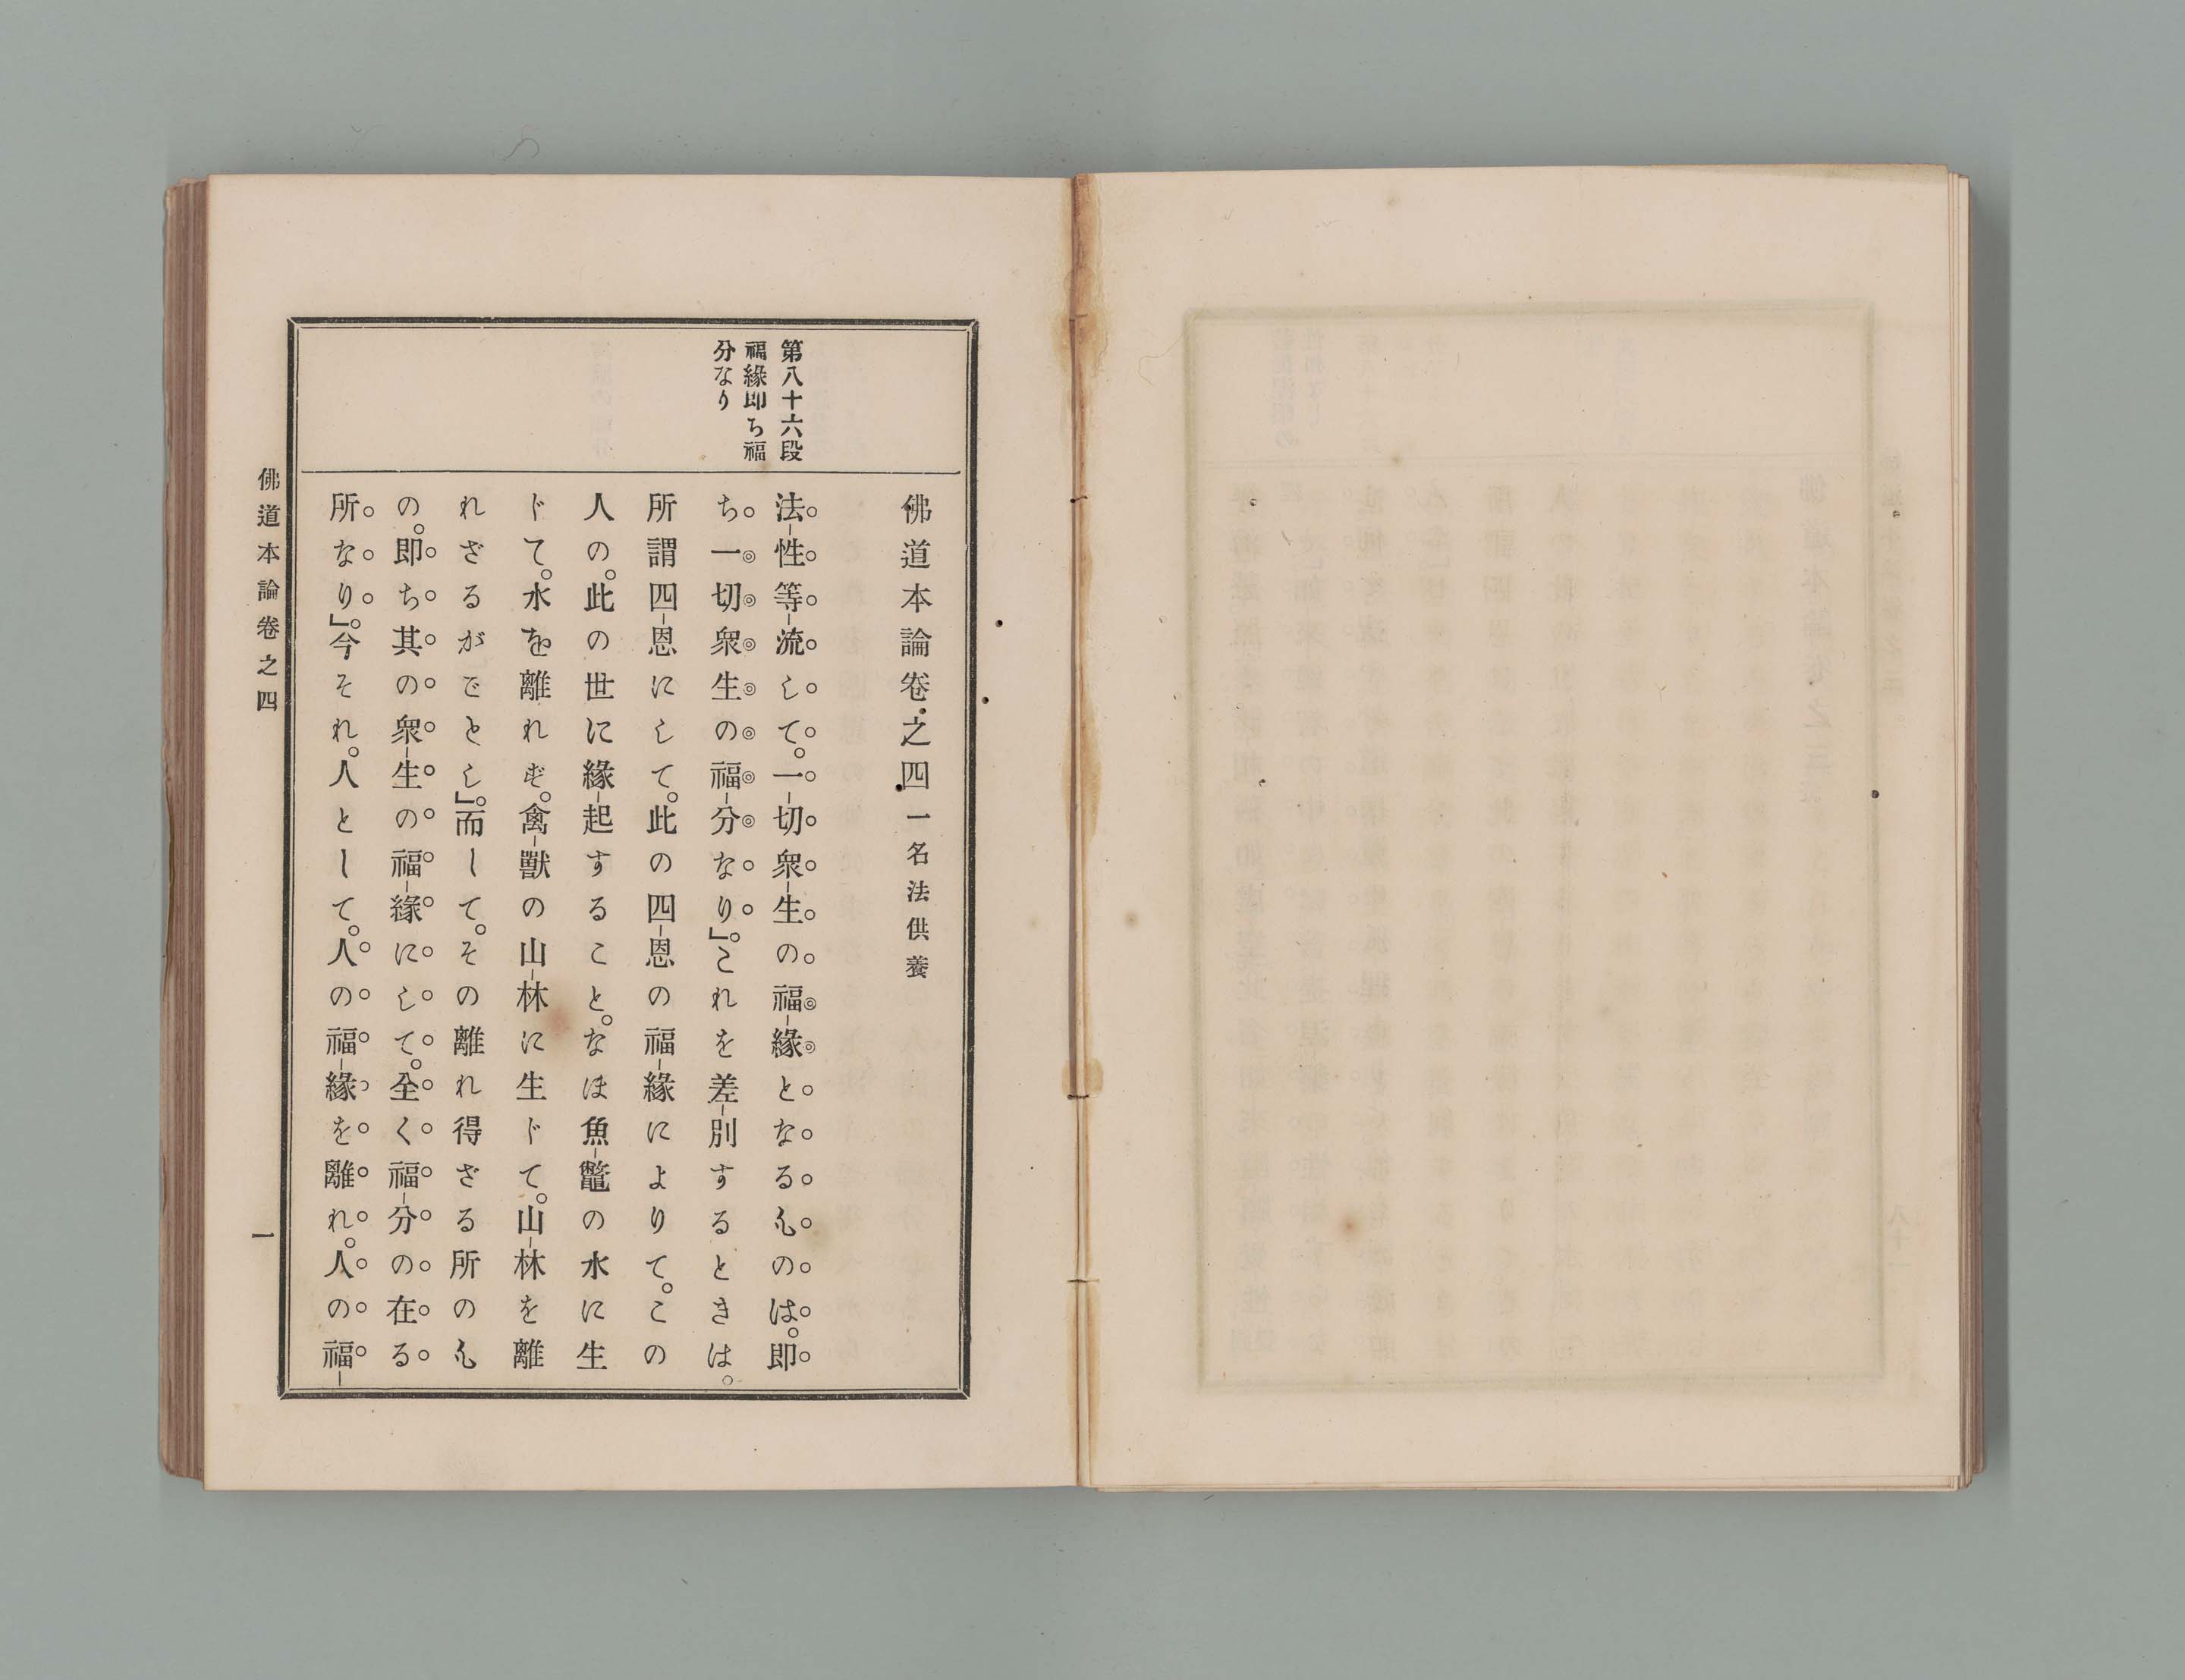 佛道本論卷之四 一名法供養
第八十六段
福緣即ち福
分なり
法性等流して。一切衆生の福緣となるものは。即
ち一切衆生の福分なり」。これを差別するときは。
所謂四恩にして。此の四恩の福緣によりて。この
人の。此の世に緣起すること。なほ魚鼈の水に生
じて。水を離れず。禽獸の山林に生じて。山林を離
れざるがごとし」。而して。その離れ得ざる所のも
の。即ち其の衆生の福緣にして。全く福分の在る
所なり」。今それ。人として。人の福緣を離れ。人の福
佛道本論卷之四
一